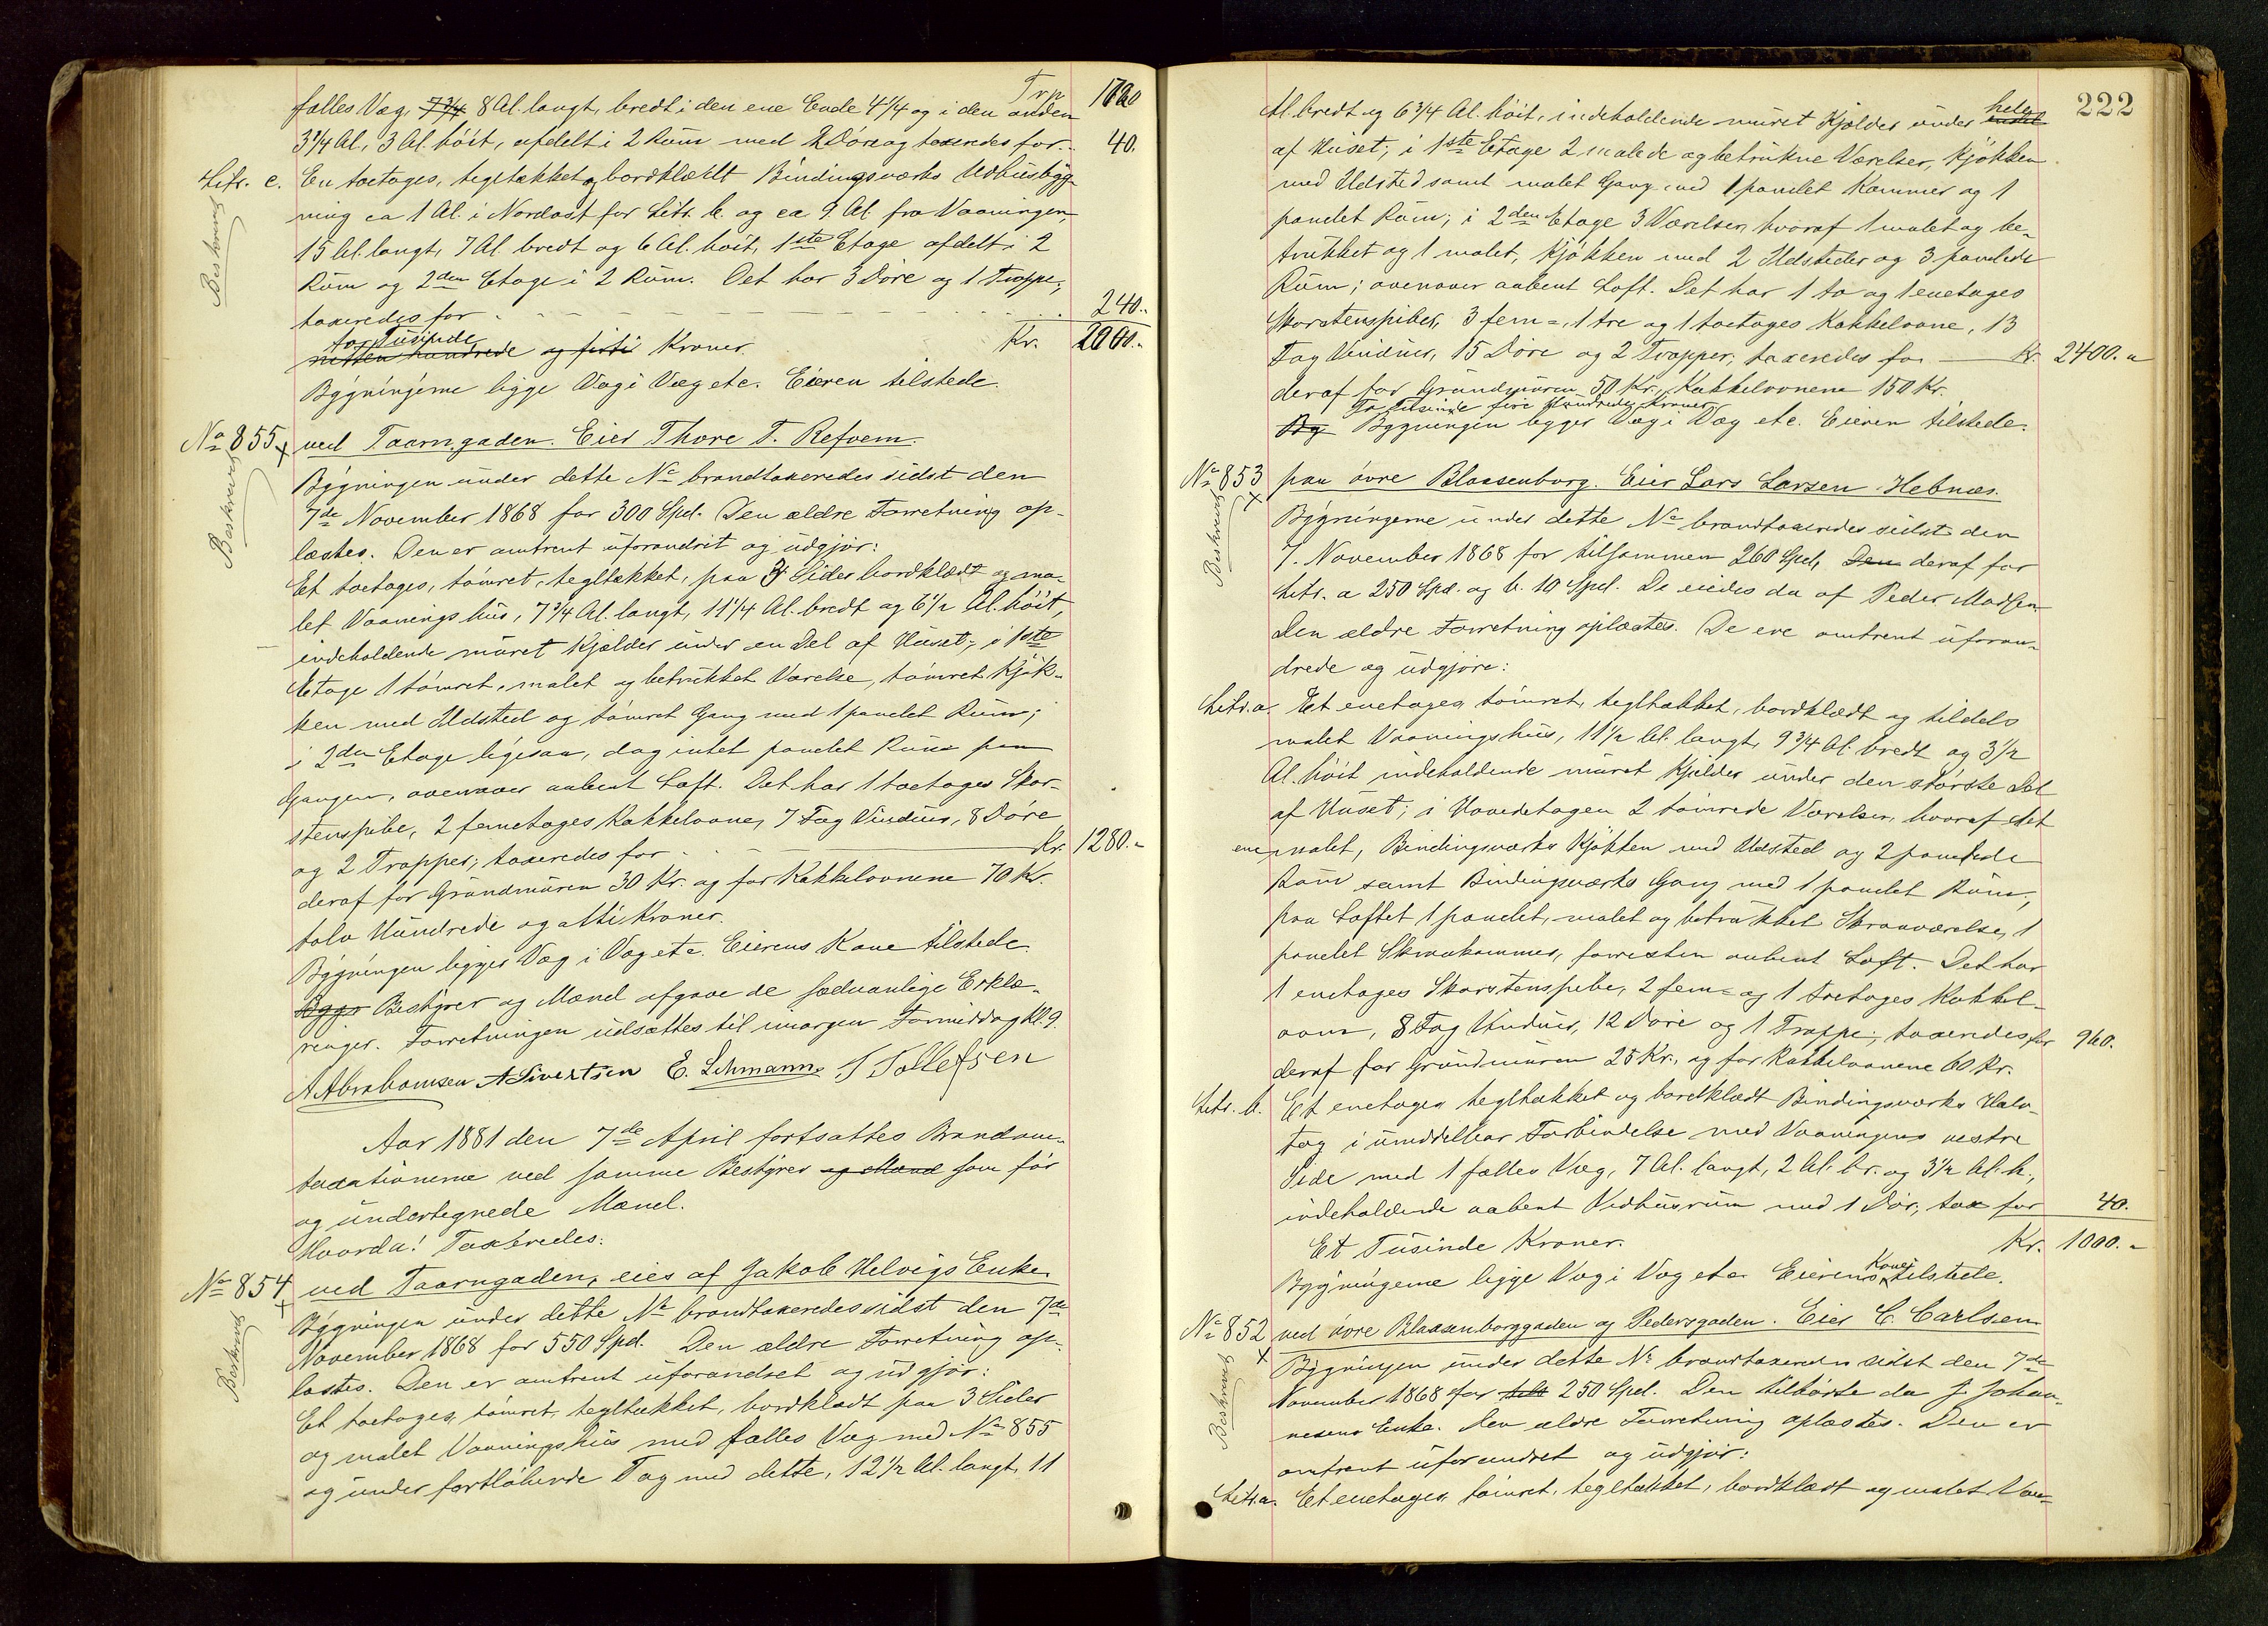 Trp. 1720
fælles Væg, 7 3/4 8 Al. langt, bredt i den ene Ende 4 1/4 og i den anden
3 1/4 Al., 3 Al. höit, afdelt i 2 Rum med 2 Döre og taxeredes for 40.
Litr. c. En toetages, tegltækket og bordklædt Bindingsværks Udhusbyg-
Beskrevet
ning ca 1 Al. i Nordost for Litr. b. og ca 9 Al. fra Vaaningen,
15 Al. langt, 7 Al. bredt og 6 Al. höit, 1ste Etage afdelt i 2
Rum og 2den Etage i 2 Rum. Det har 3 Döre og 1 Trappe;
taxeredes for 240.
to Tusinde
nitten hundrede og firti Kroner. Kr. 2000.-
Bygningerne ligge Væg i Væg etc. Eieren tilstede.
No 855 ved Taarngaden. Eier Thore T. Refvem.
Beskrevet
Bygningen under dette No brandtaxeredes sidst den
7de November 1868 for 300 Spd. Den ældre Forretning op-
læstes. Den er omtrent uforandrit og udgjör:
Et toetages, tömret, tegltækket, paa 3 Sider bordklædt og ma-
let Vaaningshus, 7 3/4 Al. langt, 11 1/4 Al. bredt og 6 1/2 Al. höit,
indeholdende muret Kjelder under en Del af Huset; i 1ste
Etage 1 tömret, malet og betrukket Værelse, tömret Kjök-
ken med Ildsted og tömret Gang med 1 panelet Rum;
i 2den Etage ligesaa, dog intet panelet Rum paa
Gangen, ovenover aabent Loft. Det har 1 toetages Skor-
stenspibe, 2 femetages Kakkelovne, 7 Fag Vinduer, 8 Döre
og 2 Trapper; taxeredes for Kr. 1280.-
deraf for Grundmuren 30 Kr. og for Kakkelovnene 70 Kr.
tolv Hundrede og otti Kroner.
Bygningen ligger Væg i Væg etc. Eierens Kone tilstede.
Bygge Bestyrer og Mænd afgave de sædvanlige Erklæ-
ringer. Forretningen udsættes til imorgen Formiddag Kl. 9.
A Abrahamsen A Sivertsen E. Lehmann T Tollefsen
Aar 1881 den 7de April fortsattes Brandom-
taxationerne ved samme Bestyrer og Mænd som för
og undertegnede Mænd.
Hvorda! Taxeredes:
No 854 ved Taarngaden, eies af Jakob Helvigs Enke.
Beskrevet
Bygningen under dette No brandtaxeredes sidst den 7de
November 1868 for 550 Spd. Den ældre Forretning op-
læstes. Den er omtrent uforandret og udgjör:
Et toetages, tömret, tegltækket, bordklædt paa 3 Sider
og malet Vaaningshus med fælles Væg med No 855
og under fortlöbende Tag med dette, 12 1/2 Al. langt, 11
222
Al. bredt og 6 3/4 Al. höit, indeholdende muret Kjelder under hele
af Huset; i 1ste Etage 2 malede og betrukne Værelser, Kjökken
med Ildsted samt malet Gang med 1 panelet Kammer og 1
panelet Rum; i 2den Etage 3 Værelser, hvoraf 1 malet og be-
trukket og 1 malet, Kjökken med 2 Ildsteder og 3 panelede
Rum; ovenover aabent Loft. Det har 1 to og 1 enetages
Skorstenspiber, 3 fem=, 1 tre og 1 toetages Kakkelovne, 13
Fag Vinduer, 15 Döre og 2 Trapper, taxeredes for Kr. 2400.-
deraf for Grundmuren 50 Kr., Kakkelovnene 150 Kr.
To Tusinde fire Hundrede Kroner
Byg Bygningen ligger Væg i Væg etc. Eieren tilstede.
No 853 paa övre Blaasenborg. Eier Lars Larsen Hebnæs.
Beskrevet
Bygningerne under dette No brandtaxeredes sidst den
7. November 1868 for tilsammen 260 Spd., Den deraf for
Litr. a 250 Spd. og b. 10 Spd. De eiedes da af Peder Madsen.
Den ældre Forretning oplæstes. De ere omtrent uforan-
drede og udgjöre:
Litr. a. Et enetages, tömret, tegltækket, bordklædt og tildels
malet Vaaningshus, 11 1/2 Al. langt, 9 3/4 Al. bredt og 3 1/2
Al. höit indeholdende muret Kjelder under den störste Del
af Huset; i Hovedetagen 2 tömrede Værelser, hvoraf det
ene malet, Bindingsværks Kjökken med Ildsted og 2 panelede
Rum samt Bindingsværks Gang med 1 panelet Rum;
paa Loftet 1 panelet, malet og betrukket Skraaværelse, 1
panelet Skraakammer, forresten aabent Loft. Det har
1 enetages Skorstenspibe, 2 fem= og 1 tretages Kakkel-
ovn, 8 Fag Vinduer, 12 Döre og 1 Trappe; taxeredes for 960.
deraf for Grundmuren 25 Kr., og for Kakkelovnene 60 Kr.
Litr. b. Et enetages tegltækket og bordklædt Bindingsværks Halv-
tag i umiddelbar Forbindelse med Vaaningens vestre
Side med 1 fælles Væg, 7 Al. langt, 2 Al. br. og 3 1/2 Al. h.,
indeholdende aabent Vedhusrum med 1 Dör, tax for 40.
Et Tusinde Kroner. Kr. 1000.-
Bygningerne ligge Væg i Væg etc Eierens Kone tilstede.
No 852 ved övre Blaasenborggaden og Pedersgaden. Eier C. Carlsen
Beskrevet
Bygningen under dette No brandtaxeredes sidst den 7de
November 1868 for 250 Spd. Den tilhörte da J. Johan-
nesens Enke. Den ældre Forretning oplæstes. Den er
omtrent uforandret og udgjör:
Litr. a. Et enetages, tömret, tegltækket, bordklædt og malet Vaa-